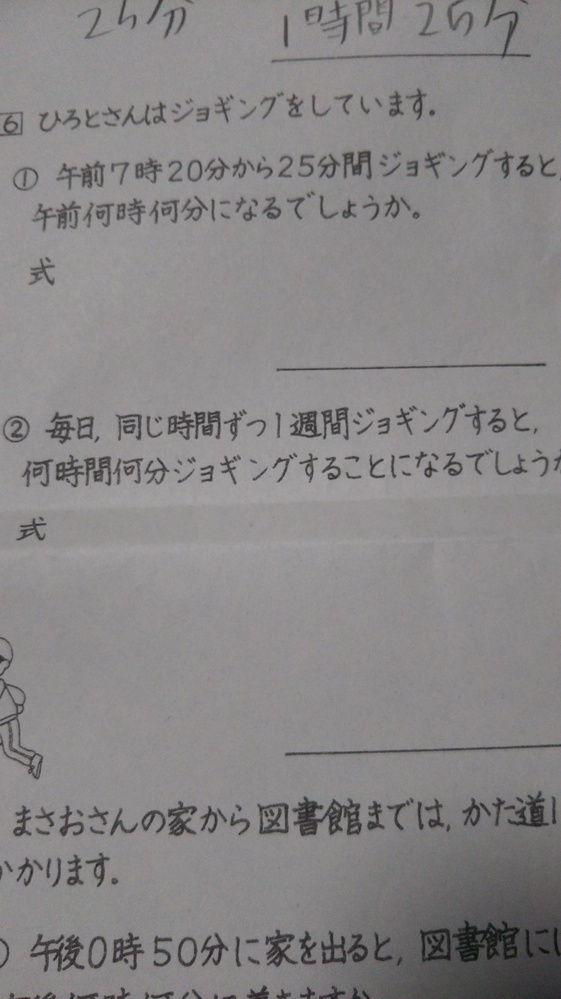 25分
1時間 25分
6 ひろとさんはジョギングをしています。
① 午前7時20分から25分間ジョギングすると、
午前何時何分になるでしょうか。
式
② 毎日、同じ時間ずつ1週間ジョギングすると、
何時間何分ジョギングすることになるでしょうか
式
まさおさんの家から図書館までは、かた道1
かかります。
午後0時50分に家を出ると、図書館に
午後何時何分に着きますか